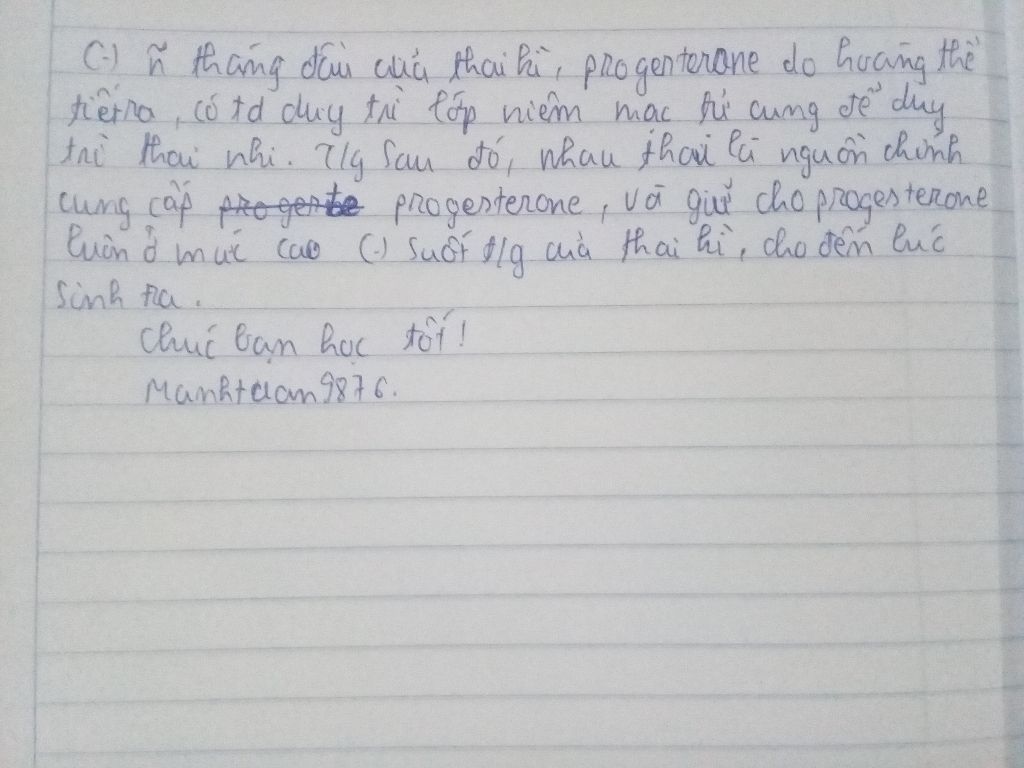 (.) ñ tháng đầu của thai kì, progenterone do hoàng thể
tiết ra, có td duy trì lớp niêm mạc tử cung để duy
trì thai nhi. T/g sau đó, nhau thai là nguồn chính
cung cấp progente progesterone, và giữ cho progesterone
luôn ở mức cao (.) suốt t/g của thai kì, cho đến lúc
sinh ra.
Chúc bạn học tốt!
Manhtuan9876.